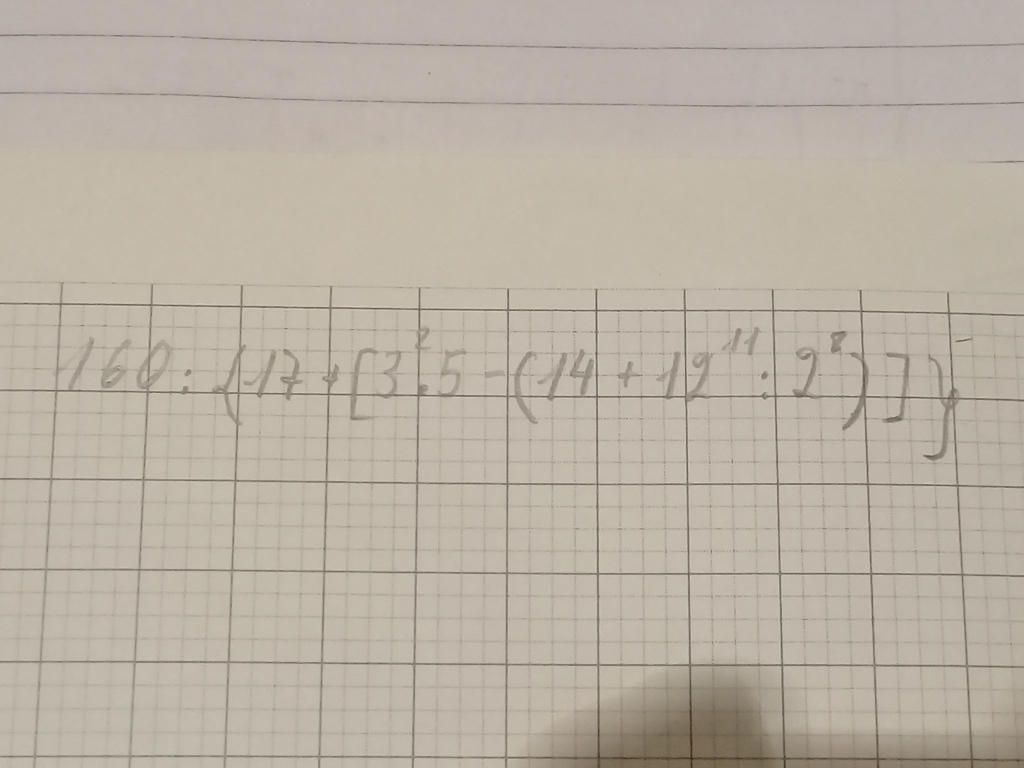 160 : {17 + [3² · 5 - (14 + 12¹¹ : 2⁸)]}